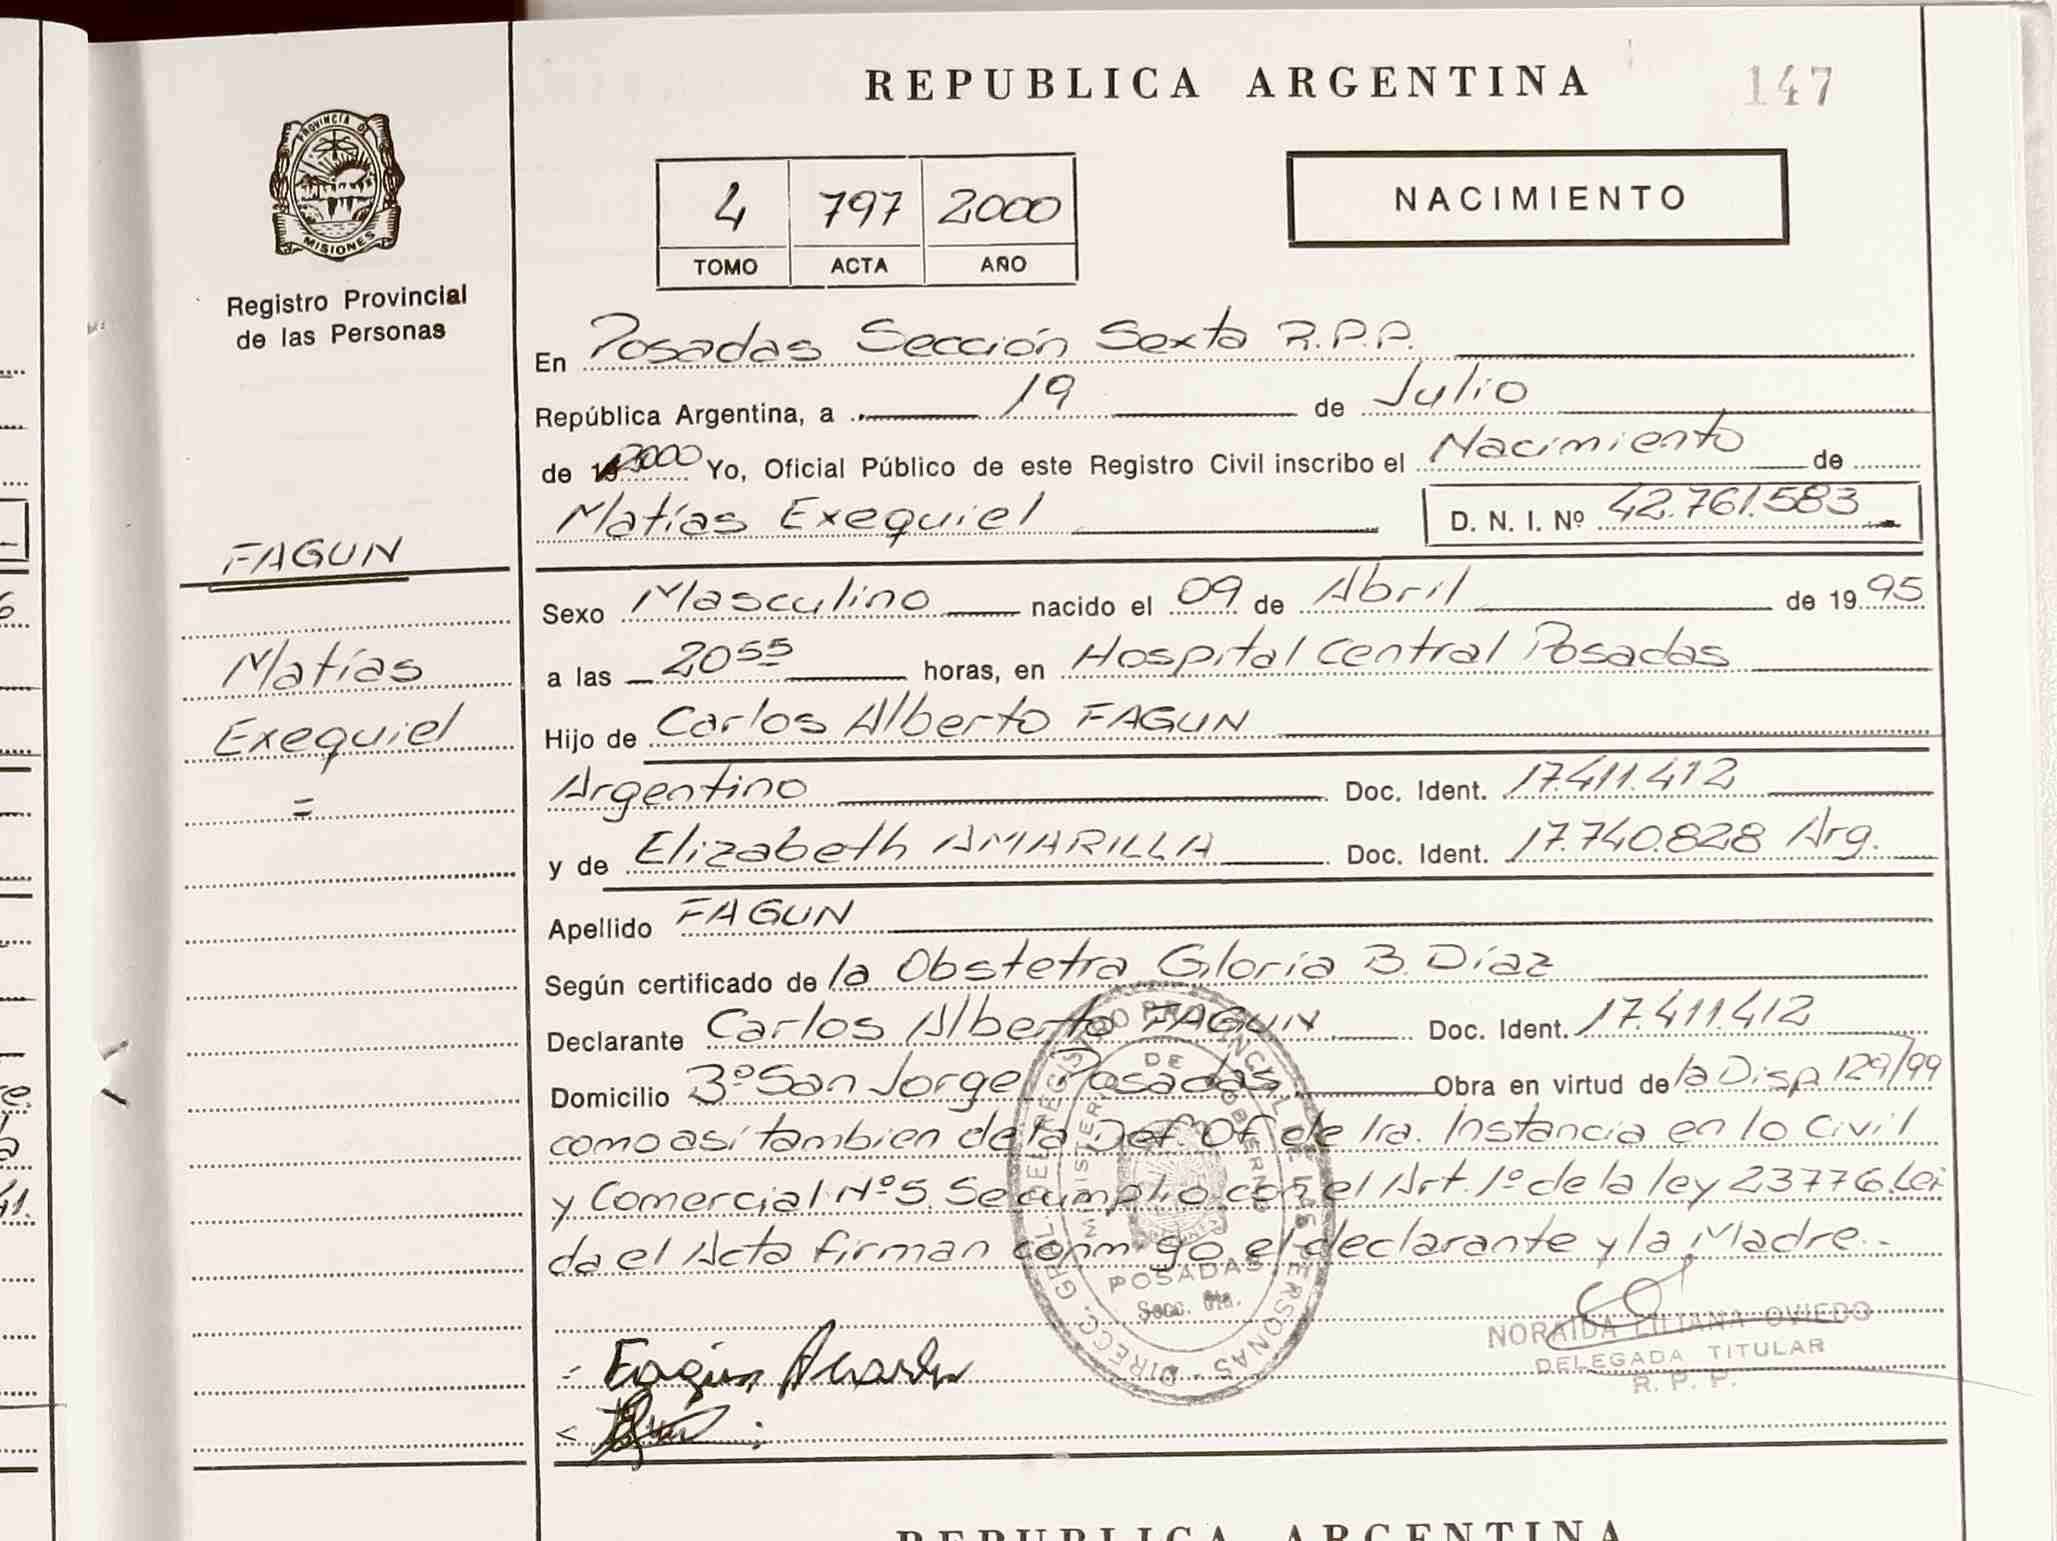 REPUBLICA ARGENTINA
147
PROVINCIA DE
MISIONES
Registro Provincial
de las Personas
4 797 2000
TOMO ACTA AÑO
NACIMIENTO
En Posadas Sección Sexta R.P.P.
República Argentina, a 19 de Julio
de 2000 Yo, Oficial Público de este Registro Civil inscribo el Nacimiento de
Matías Exequiel D. N. I. Nº 42.761.583
FAGUN
Matías
Exequiel
=
Sexo Masculino nacido el 09 de Abril de 19 95
a las 20 55 horas, en Hospital Central Posadas
Hijo de Carlos Alberto FAGUN
Argentino Doc. Ident. 17.411.412
y de Elizabeth AMARILLA Doc. Ident. 17.740.828 Arg.
Apellido FAGUN
Según certificado de la Obstetra Gloria B. Díaz
Declarante Carlos Alberto FAGUN Doc. Ident. 17.411.412
Domicilio Bº San Jorge Posadas Obra en virtud de la Disp 129/99
como así tambien de la Def. Of de 1ra. Instancia en lo Civil
y Comercial Nº 5. Se cumplio con el Art. 1º de la ley 23776. Lei
da el Acta firman conmigo el declarante y la Madre.-
DIRECC. GRAL. DEL REGISTRO PROVINCIAL DE LAS PERSONAS
MINISTERIO DE GOBIERNO
POSADAS
Secc. 6ta.
NORAIDA LILIANA OVIEDO
DELEGADA TITULAR
R. P. P.
REPUBLICA ARGENTINA